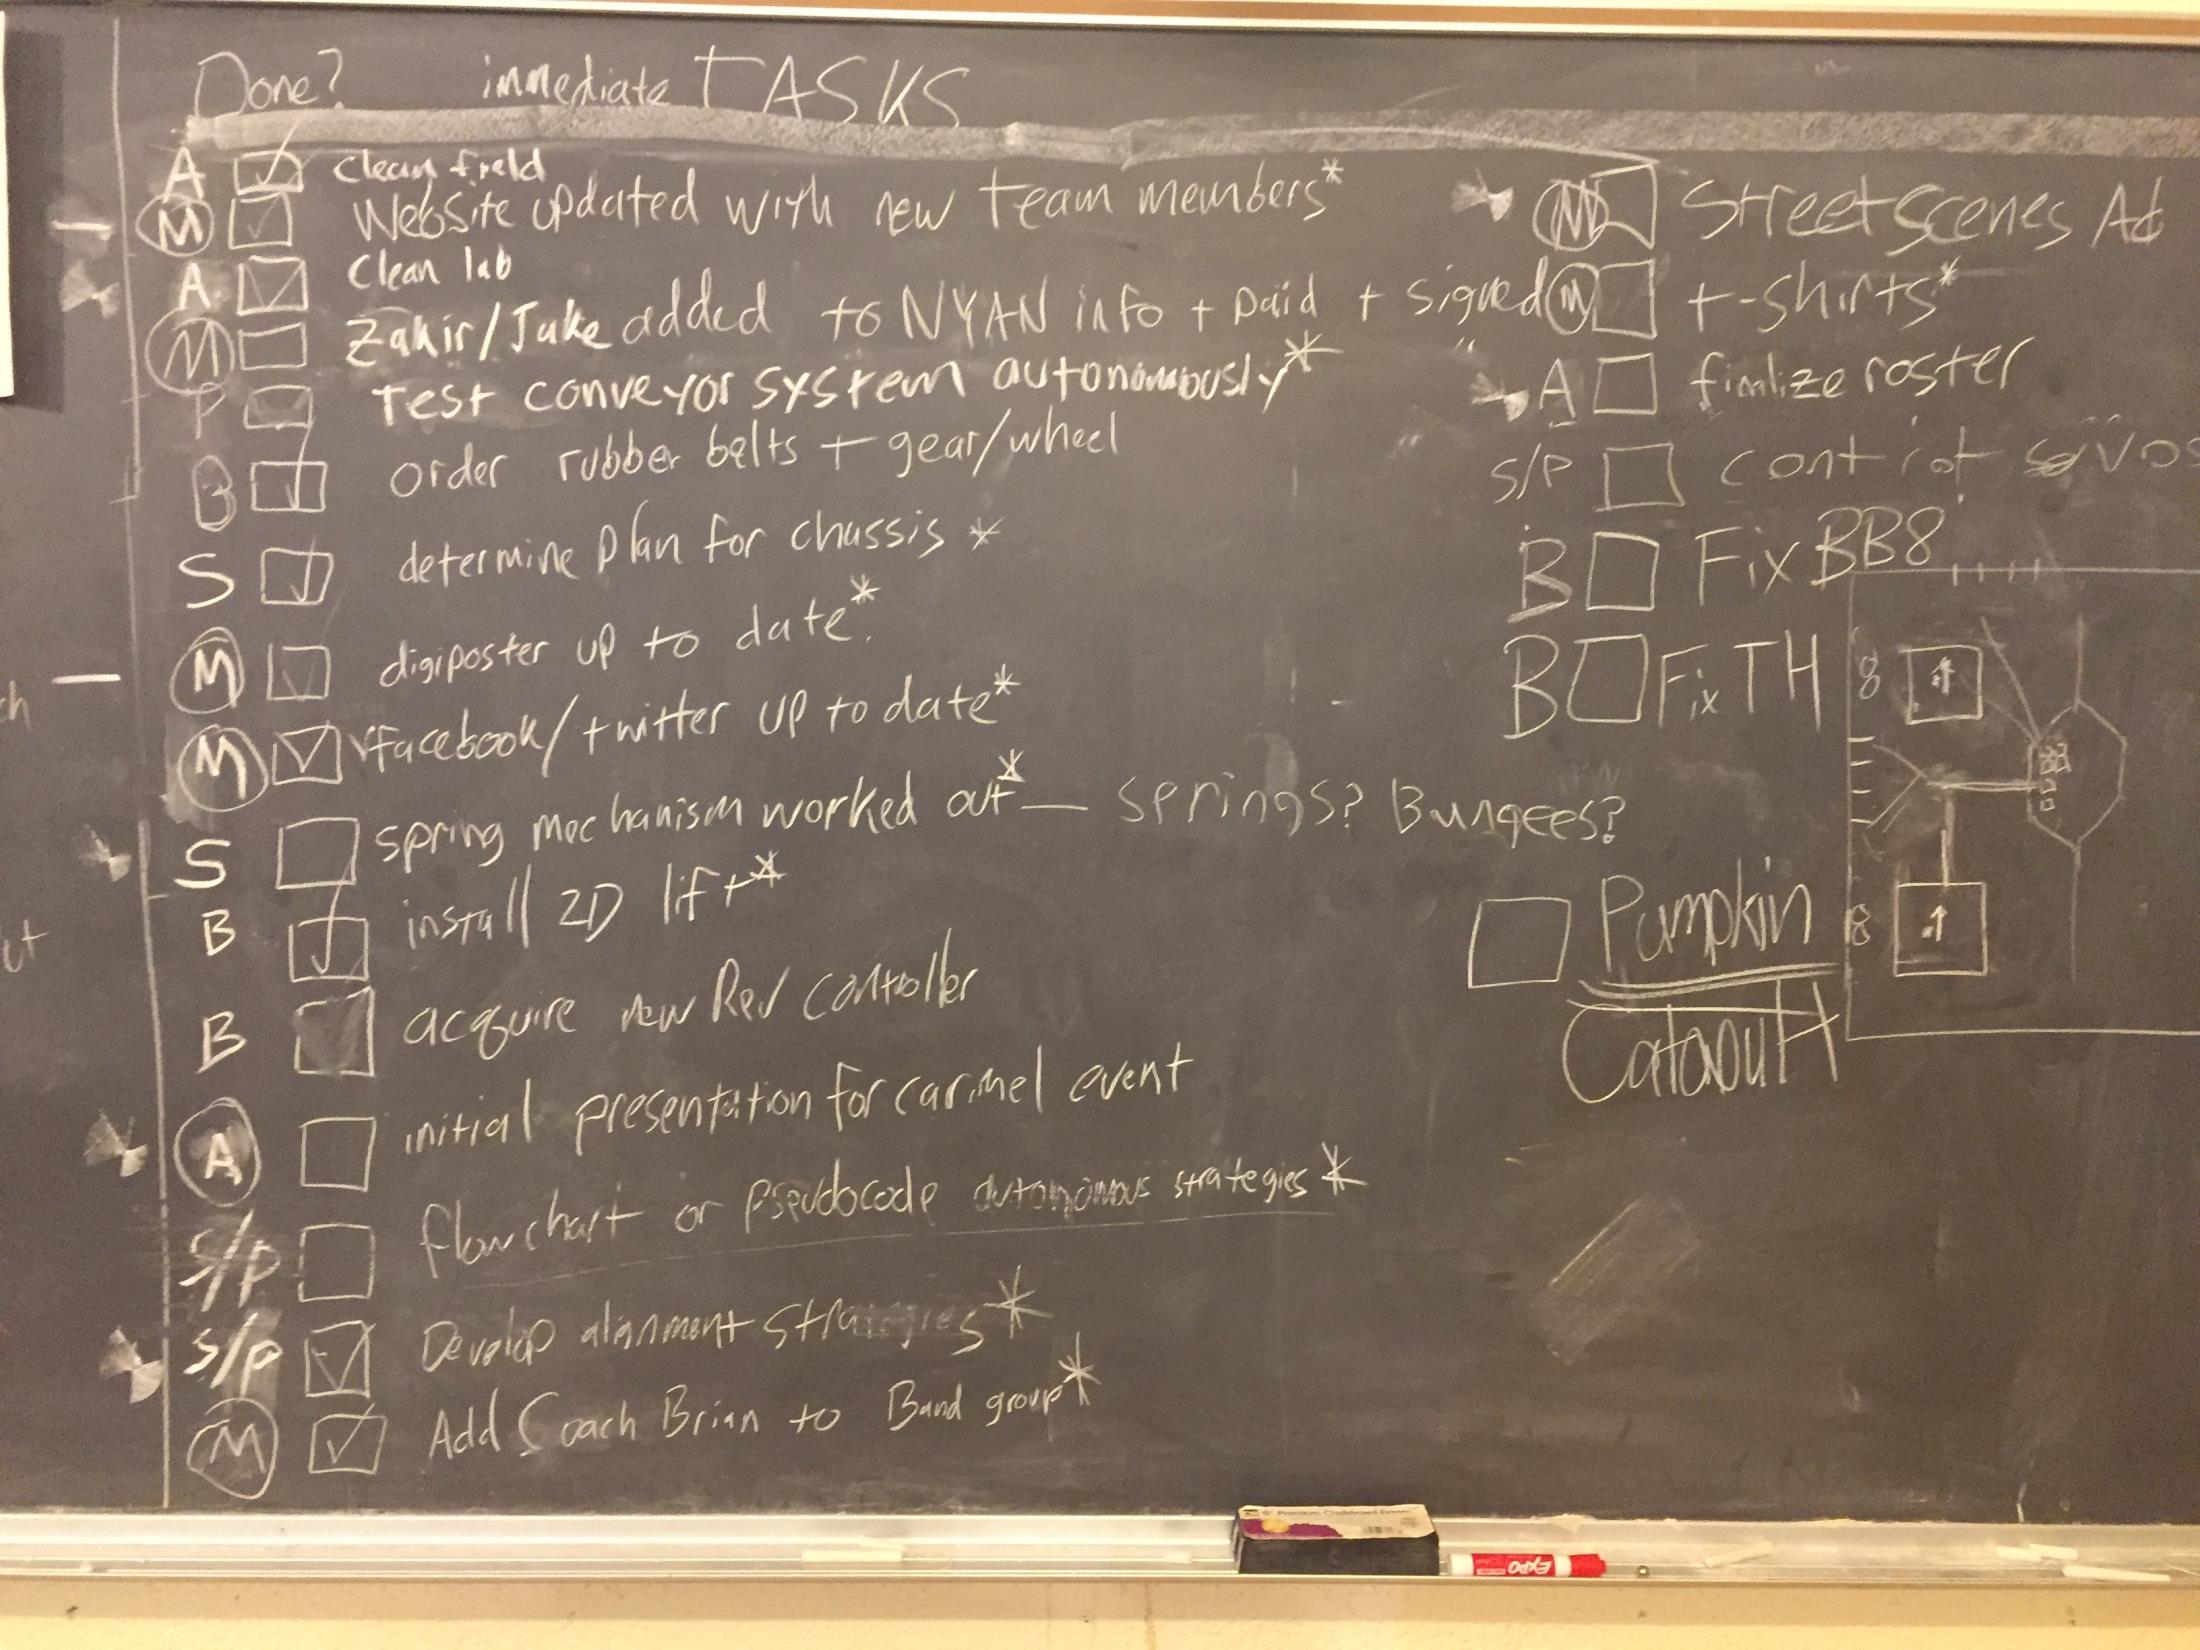 Done? immediate TASKS
A clean field
M Website updated with new team members*
A clean lab
M Zahir/Jake added to NYAN info + paid + signed
P Test conveyor system autonomously*
B order rubber belts + gear/wheel
S determine plan for chassis *
M digiposter up to date*
M facebook/twitter up to date*
S spring mechanism worked out* — springs? Bungees?
B install 2D lift*
B acquire new Rev controller
A initial presentation for carmel event
S/P flowchart or pseudocode autonomous strategies *
S/P Develop alignment strategies *
M Add Coach Brian to Band group*
M Street Scenes Ad
M t-shirts*
A finlize roster
S/P cont rot
B Fix BB8
B Fix TH
8
8
Pumpkin
Catapult
EXPO